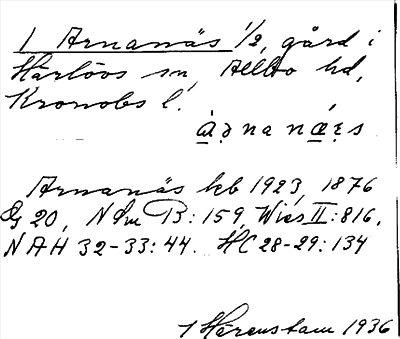 1 Arnanäs 1/2, gård i
Härlövs sn, Allbo hd,
Kronobs l.
Arnanäs kb 1923, 1876
G 20, NSm B:159, Wies II:816,
NAH 32-33:44. HC 28-29:134
1936